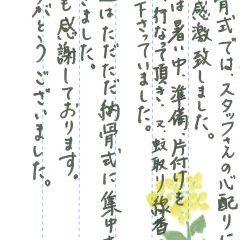 骨式では、スタッフさんの心配りに
感激致しました。
は暑い中、準備、片付けを
行なって頂き、又、蚊取り線香
下さっていました。
はただただ納骨式に集中
きました。
も感謝しております。
がとうございました。